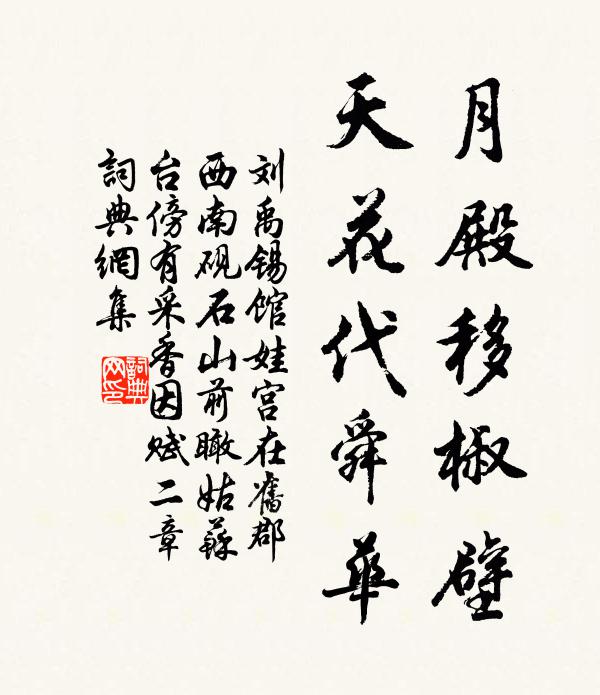 月殿移椒壁
天花代舜華
刘禹锡馆娃宫在舊郡
西南砚石山前瞰姑蘇
台傍有采香因赋二章
詞典網集
詞典
网印